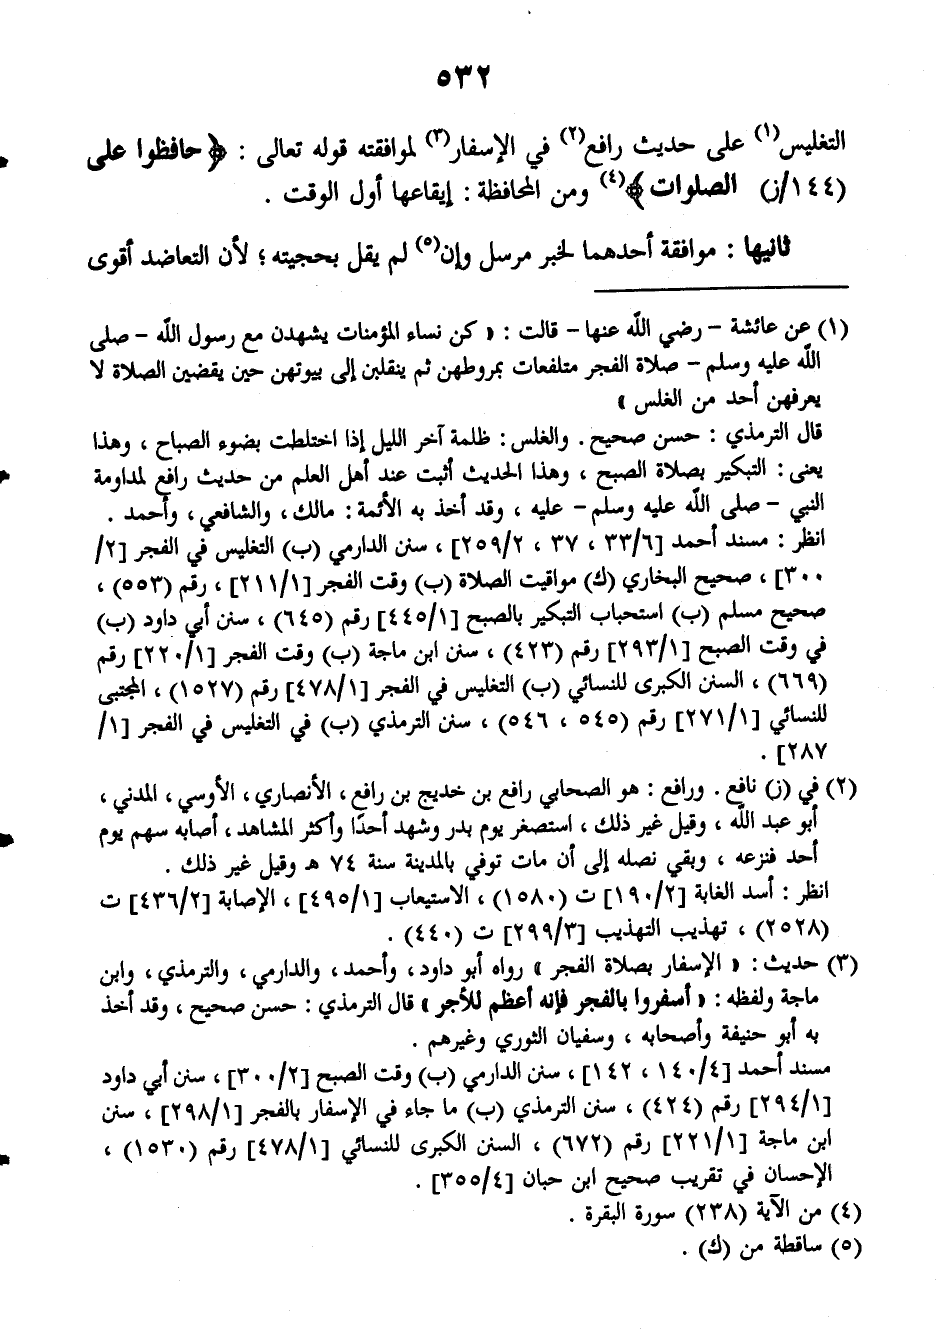 ٥٣٢
التغليس(١) على حديث رافع(٢) في الإسفار(٣) لموافقته قوله تعالى : ﴿ حافظوا على
(١٤٤/ز) الصلوات ﴾(٤) ومن المحافظة : إيقاعها أول الوقت .
ثانيها : موافقة أحدهما لخبر مرسل وإن(٥) لم يقل بحجيته ؛ لأن التعاضد أقوى
(١) عن عائشة - رضي الله عنها - قالت : « كن نساء المؤمنات يشهدن مع رسول الله - صلى
الله عليه وسلم - صلاة الفجر متلفعات بمروطهن ثم ينقلبن إلى بيوتهن حين يقضين الصلاة لا
يعرفهن أحد من الغلس »
قال الترمذي : حسن صحيح . والغلس : ظلمة آخر الليل إذا اختلطت بضوء الصباح ، وهذا
يعنى : التبكير بصلاة الصبح ، وهذا الحديث أثبت عند أهل العلم من حديث رافع لمداومة
النبي - صلى الله عليه وسلم - عليه ، وقد أخذ به الأئمة : مالك ، والشافعي ، وأحمد .
انظر : مسند أحمد [٣٣/٦ ، ٣٧ ، ٢٥٩/٢] ، سنن الدارمي (ب) التغليس في الفجر [٢/
٣٠٠] ، صحيح البخاري (ك) مواقيت الصلاة (ب) وقت الفجر [٢١١/١] ، رقم (٥٥٣) ،
صحيح مسلم (ب) استحباب التبكير بالصبح [٤٤٥/١] رقم (٦٤٥) ، سنن أبي داود (ب)
في وقت الصبح [٢٩٣/١] رقم (٤٢٣) ، سنن ابن ماجة (ب) وقت الفجر [٢٢٠/١] رقم
(٦٦٩) ، السنن الكبرى للنسائي (ب) التغليس في الفجر [٤٧٨/١] رقم (١٥٢٧) ، المجتبى
للنسائي [٢٧١/١] رقم (٥٤٥ ، ٥٤٦) ، سنن الترمذي (ب) في التغليس في الفجر [١/
٢٨٧] .
(٢) في (ز) نافع . ورافع : هو الصحابي رافع بن خديج بن رافع ، الأنصاري ، الأوسي ، المدني ،
أبو عبد الله ، وقيل غير ذلك ، استصغر يوم بدر وشهد أحدًا وأكثر المشاهد ، أصابه سهم يوم
أحد فنزعه ، وبقي نصله إلى أن مات توفي بالمدينة سنة ٧٤ هـ وقيل غير ذلك .
انظر : أسد الغابة [١٩٠/٢] ت (١٥٨٠) ، الاستيعاب [٤٩٥/١] ، الإصابة [٤٣٦/٢] ت
(٢٥٢٨) ، تهذيب التهذيب [٢٩٩/٣] ت (٤٤٠) .
(٣) حديث : « الإسفار بصلاة الفجر » رواه أبو داود ، وأحمد ، والدارمي ، والترمذي ، وابن
ماجة ولفظه : « أسفروا بالفجر فإنه أعظم للأجر » قال الترمذي : حسن صحيح ، وقد أخذ
به أبو حنيفة وأصحابه ، وسفيان الثوري وغيرهم .
مسند أحمد [١٤٠/٤ ، ١٤٢] ، سنن الدارمي (ب) وقت الصبح [٣٠٠/٢] ، سنن أبي داود
[٢٩٤/١] رقم (٤٢٤) ، سنن الترمذي (ب) ما جاء في الإسفار بالفجر [٢٩٨/١] ، سنن
ابن ماجة [٢٢١/١] رقم (٦٧٢) ، السنن الكبرى للنسائي [٤٧٨/١] رقم (١٥٣٠) ،
الإحسان في تقريب صحيح ابن حبان [٣٥٥/٤] .
(٤) من الآية (٢٣٨) سورة البقرة .
(٥) ساقطة من (ك) .